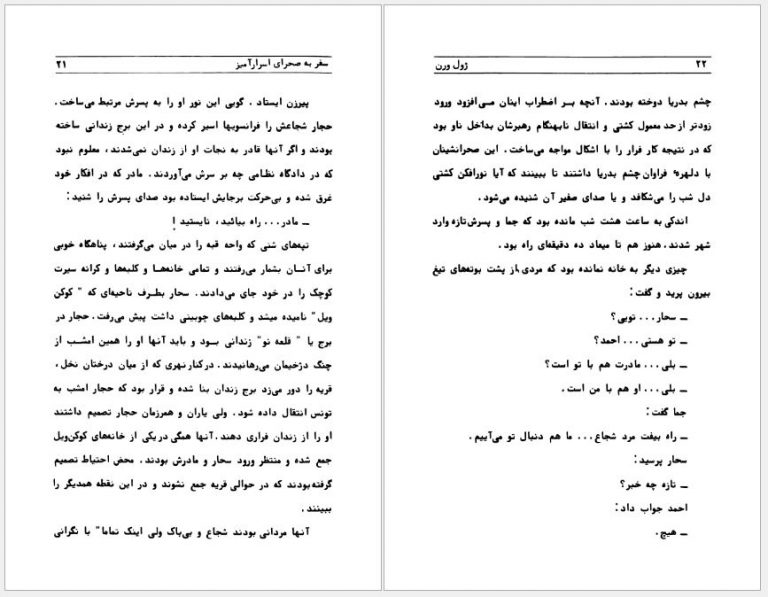 سفر به صحرای اسرارآمیز ۲۱
پیرزن ایستاد . گویی این نور او را به پسرش مرتبط می‌ساخت .
حجار شجاعش را فرانسویها اسیر کرده و در این برج زندانی ساخته
بودند و اگر آنها قادر به نجات او از زندان نمی‌شدند ، معلوم نبود
که در دادگاه نظامی چه بر سرش می‌آوردند . مادر که در افکار خود
غرق شده و بی‌حرکت برجایش ایستاده بود صدای پسرش را شنید :
ــ مادر . . . راه بیائید ، نایستید !
تپه‌های شنی که واحه قبه را در میان می‌گرفتند ، پناهگاه خوبی
برای آنــان بشمار می‌رفتند و تمامی خانه‌هــا و کلبه‌ها و کرانه سیرت
کوچک را در خود جای می‌دادند . سحار بطرف ناحیه‌ای که " کوکن
ویل " نامیده میشد و کلبه‌های چوبینی داشت پیش می‌رفت . حجار در
برج یا " قلعه نو " زندانی بــود و باید آنها او را همین امشــب از
چنگ دژخیمان می‌رهانیدند . در کنار نهری که از میان درختان نخل ،
قریه را دور می‌زد برج زندان بنا شده و قرار بود که حجار امشب به
تونس انتقال داده شود . ولی یاران و همرزمان حجار تصمیم داشتند
او را از زندان فراری دهند . آنها همگی در یکی از خانه‌های کوکن‌ویل
جمع شده و منتظر ورود سحار و مادرش بودند . محض احتیاط تصمیم
گرفته‌بودند که در حوالی قریه جمع نشوند و در این نقطه همدیگر را
ببینند .
آنها مردانی بودند شجاع و بی‌باک ولی اینک تماما" با نگرانی
۲۲ ژول ورن
چشم بدریا دوخته بودند . آنچه بــر اضطراب اینان مــی‌افزود ورود
زودتر از حد معمول کشتی و انتقال نابهنگام رهبرشان بداخل ناو بود
که در نتیجه کار فرار را با اشکال مواجه می‌ساخت . این صحرانشینان
با دلهرهٔ فراوان چشم بدریا داشتند تا ببینند که آیا نورافکن کشتی
دل شب را می‌شکافد و یا صدای صفیر آن شنیده می‌شود .
اندکی به ساعت هشت شب مانده بود که جما و پسرش تازه وارد
شهر شدند . هنوز هم تا میعاد ده دقیقه‌ای راه بود .
چیزی دیگر به خانه نمانده بود که مردی از پشت بوته‌های تیغ
بیرون پرید و گفت :
ــ سحار . . . تویی ؟
ــ تو هستی . . . احمد ؟
ــ بلی . . . مادرت هم با تو است ؟
ــ بلی . . . او هم با من است .
جما گفت :
ــ راه بیفت مرد شجاع . . . ما هم دنبال تو می‌آییم .
سحار پرسید :
ــ تازه چه خبر ؟
احمد جواب داد :
ــ هیچ .